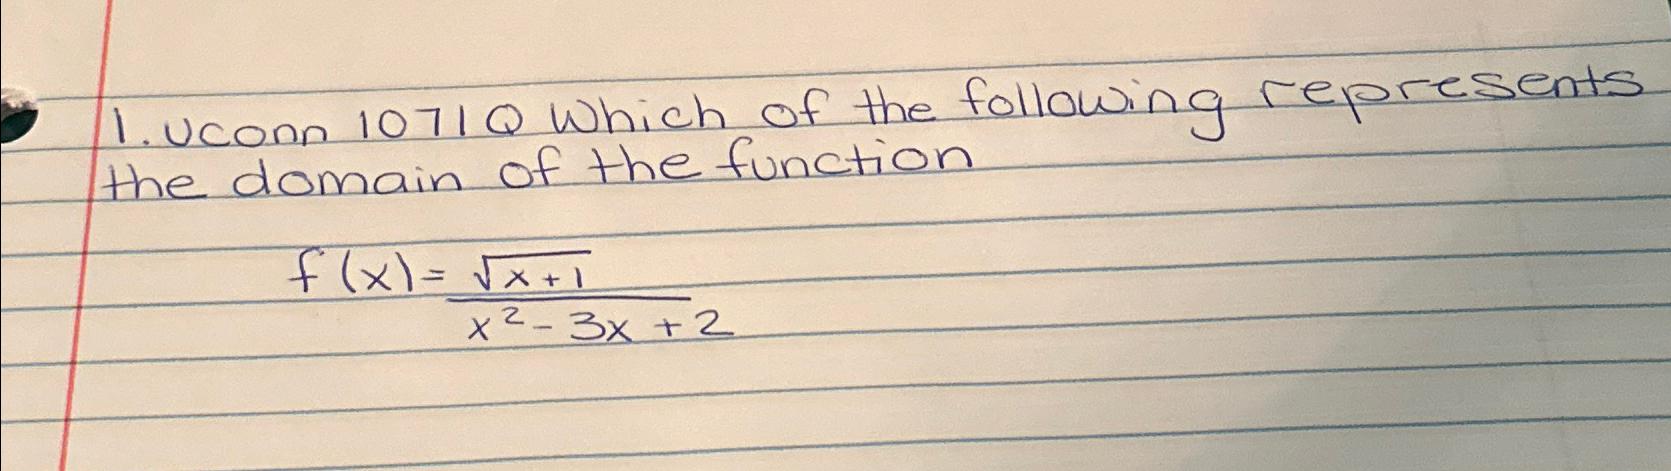 1. Uconn 1071Q Which of the following represents
the domain of the function
f(x) = √(x+1)
x² - 3x + 2